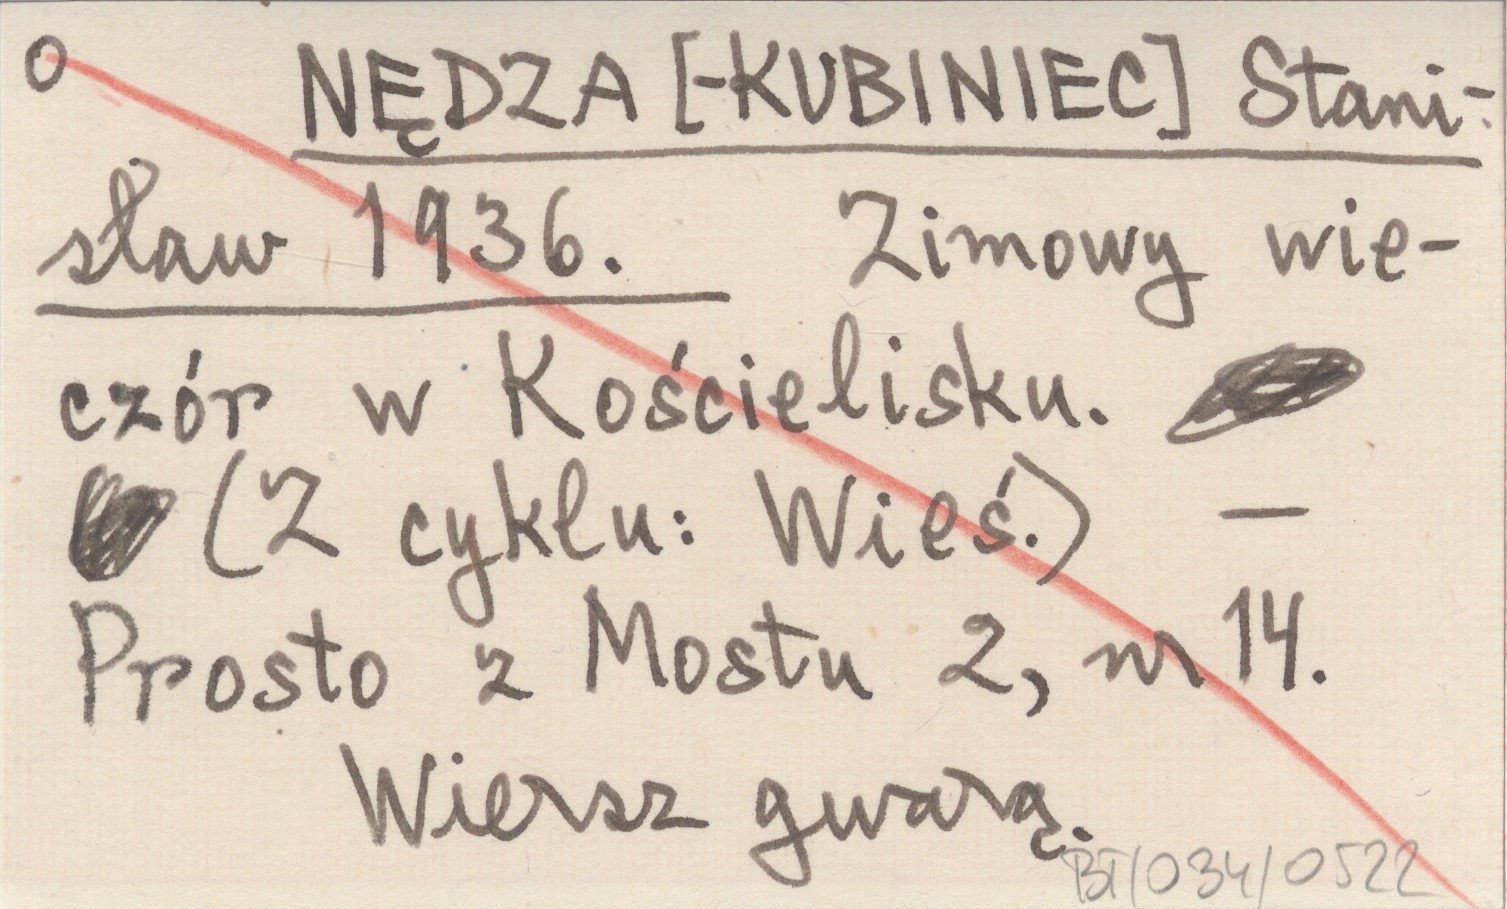 O NĘDZA [-KUBINIEC] Stani-
sław 1936. Zimowy wie-
czór w Kościelisku.
(Z cyklu: Wieś.) —
Prosto z Mostu 2, nr 14.
Wiersz gwarą.
BT/034/0522